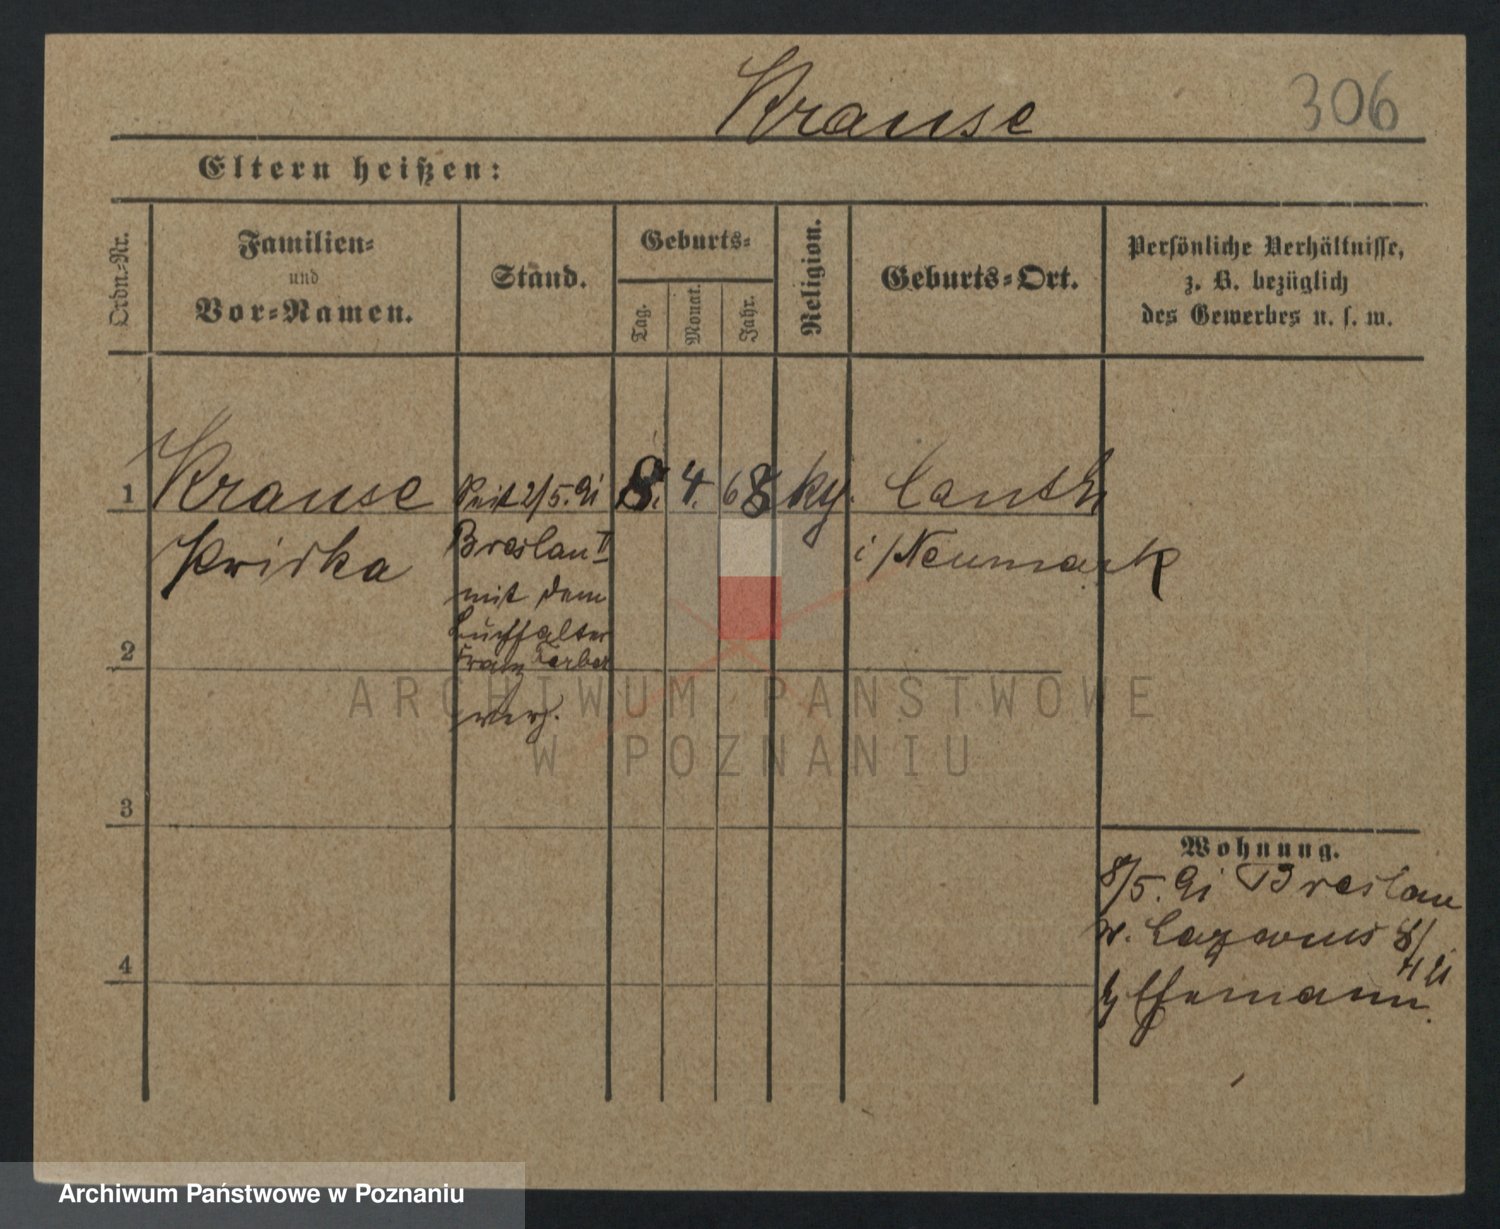 Krause
306
Eltern heißen:
Ordn.-Nr.
Familien-
und
Vor-Namen.
Stand.
Geburts-
Tag.
Monat.
Jahr.
Religion.
Geburts-Ort.
Persönliche Verhältnisse,
z. B. bezüglich
des Gewerbes u. s. w.
1 Krause seit 2/5. 91 8. 4. 68 kg. Canth
Breslau II i/Neumark
mit dem
Buchhalter
2 Franz
verh.
ARCHIWUM PAŃSTWOWE
W POZNANIU
3
Wohnung.
8/5. 91 Breslau
4
Archiwum Państwowe w Poznaniu